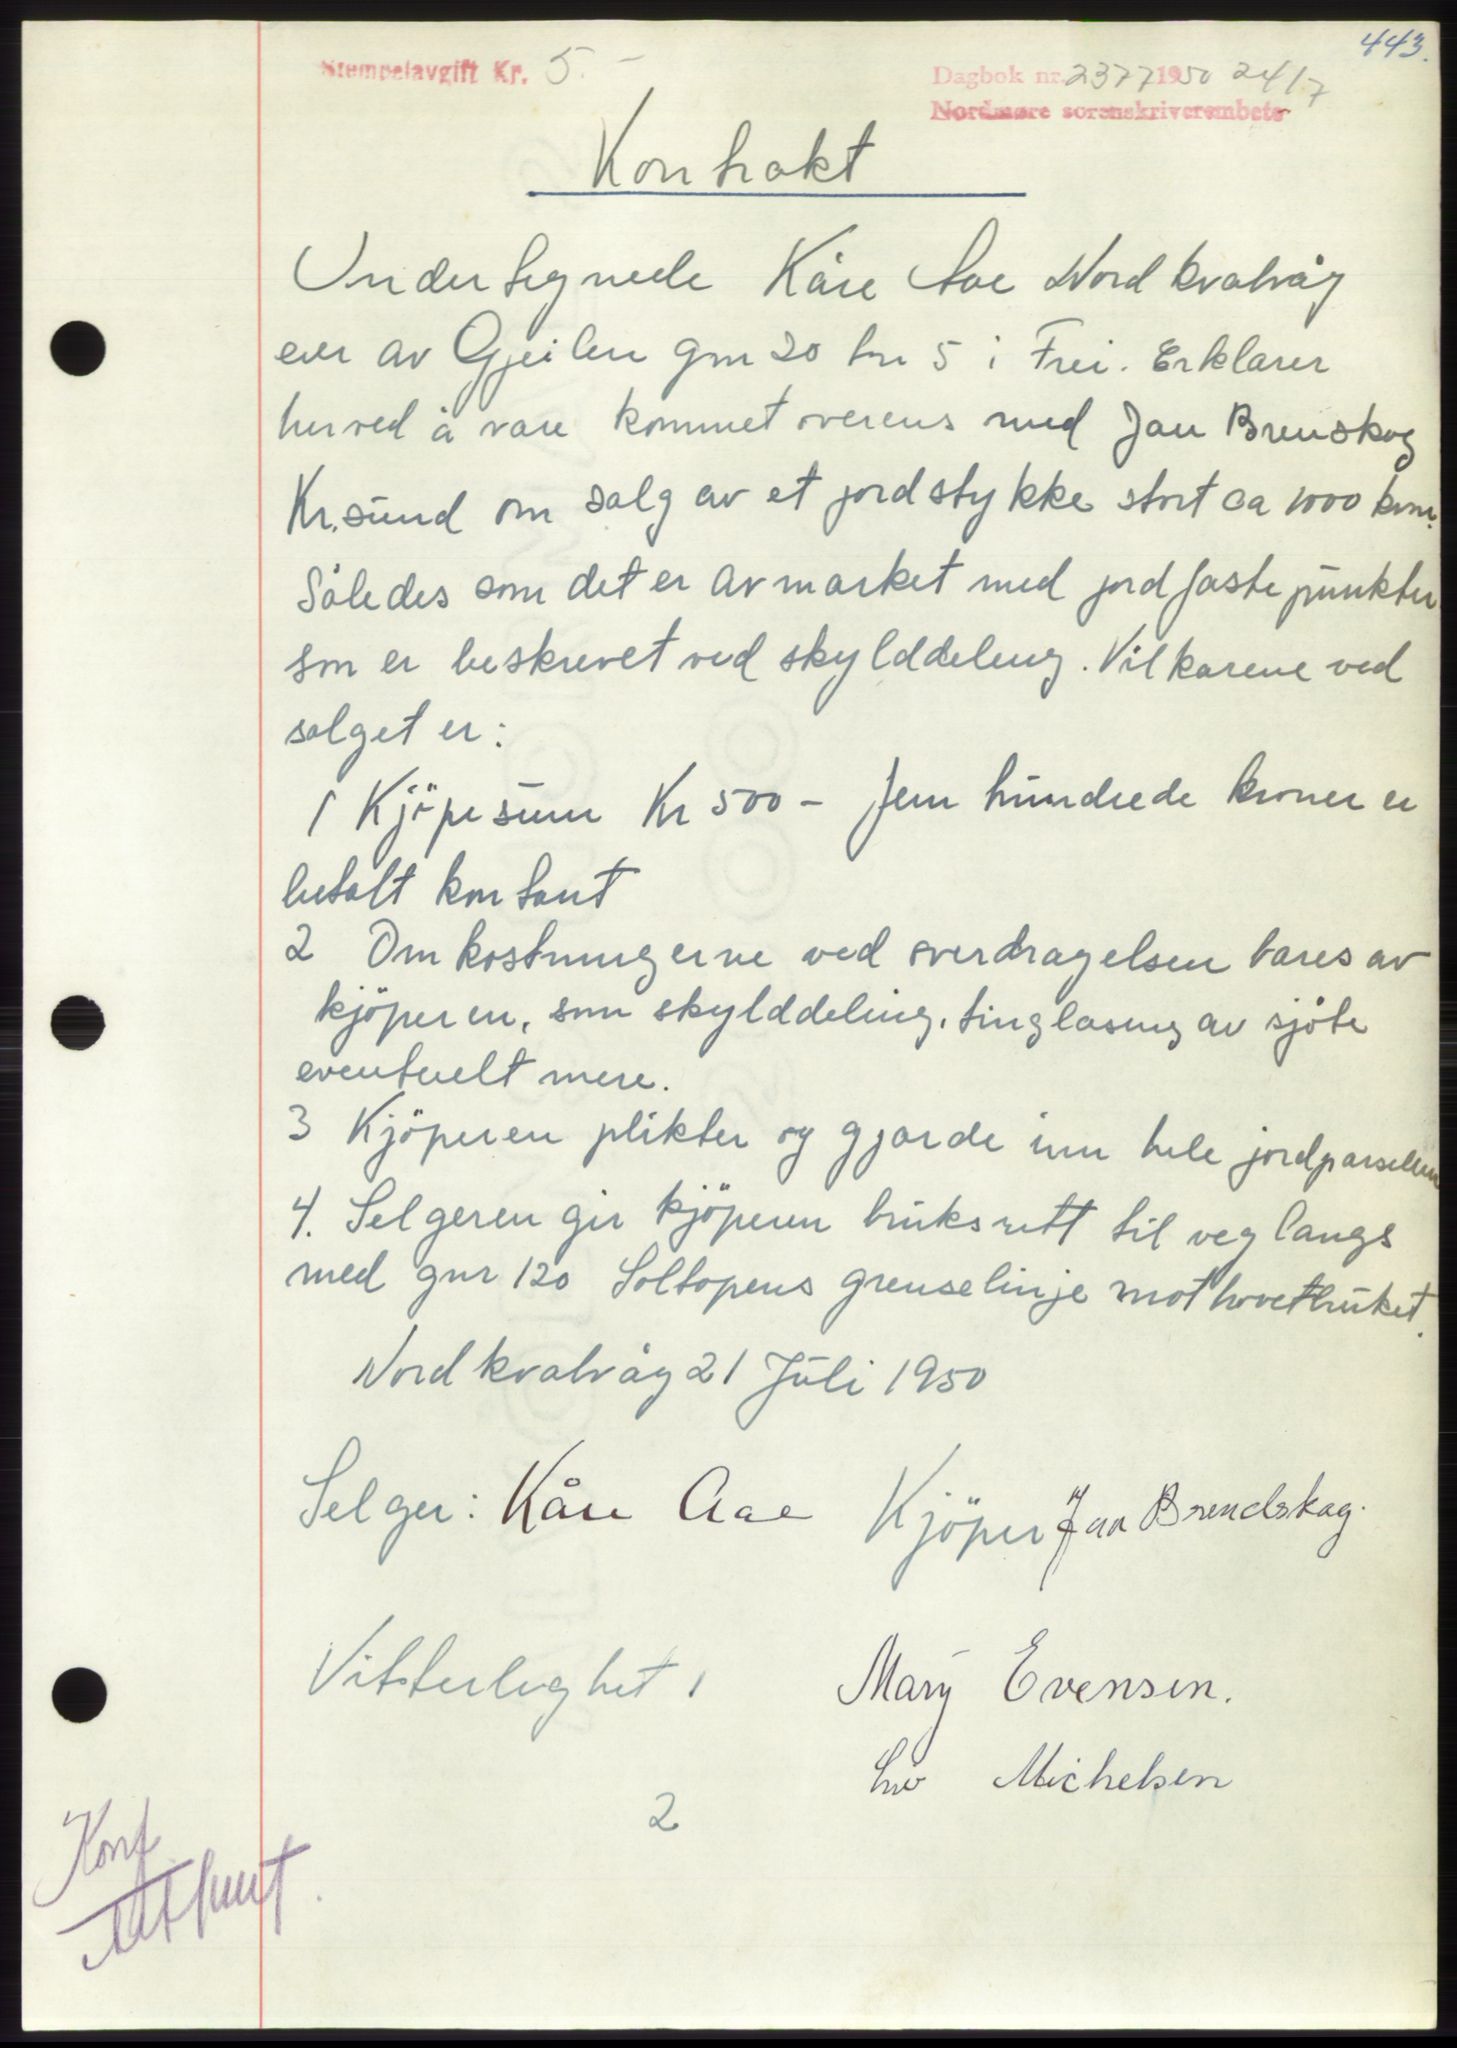 443.
Stempelavgift Kr. 5.-
Dagbok nr. 2377 1950 24/7
Nordmøre sorenskriverembete
Kontrakt
Undertegnede Kåre Aae Nordkvalvåg
eier av Gjeilen gnr 20 bnr 5 i Frei. Erklarer
herved å vare kommet overens med Jan Brenskog
Kr.sund om salg av et jordstykke stort ca 1000 kvm.
Således som det er avmarket med jordfaste punkter
som er beskrevet ved skylddeling. Vilkarene ved
salget er:
1 Kjöpesum Kr 500 - fem hundrede kroner er
betalt kontant
2 Omkostningerne ved overdragelsen bares av
kjöperen, som skylddeling, tinglasing av sjöte
eventuelt mere.
3 Kjöperen plikter og gjarde inn hele jordparsellen
4. Selgeren gir kjöperen bruksrett til veg langs
med gnr 120 Soltopens grenselinje mot hovetbruket.
Nordkvalvåg 21 Juli 1950
Selger: Kåre Aae Kjöper Jan Brendskag.
Vitterlighet 1 Mary Evensen.
2 Liv Michelsen
Konf.